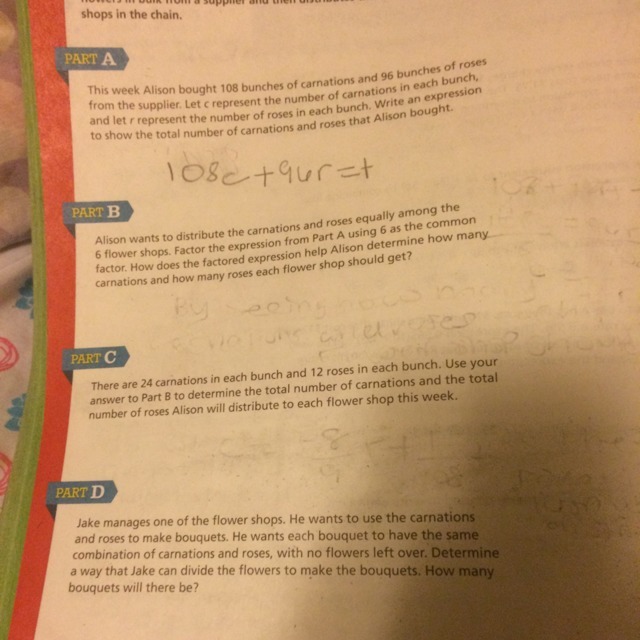 shops in the chain.
PART A
This week Alison bought 108 bunches of carnations and 96 bunches of roses
from the supplier. Let c represent the number of carnations in each bunch,
and let r represent the number of roses in each bunch. Write an expression
to show the total number of carnations and roses that Alison bought.
108c+96r=t
PART B
Alison wants to distribute the carnations and roses equally among the
6 flower shops. Factor the expression from Part A using 6 as the common
factor. How does the factored expression help Alison determine how many
carnations and how many roses each flower shop should get?
By seeing how
PART C
There are 24 carnations in each bunch and 12 roses in each bunch. Use your
answer to Part B to determine the total number of carnations and the total
number of roses Alison will distribute to each flower shop this week.
PART D
Jake manages one of the flower shops. He wants to use the carnations
and roses to make bouquets. He wants each bouquet to have the same
combination of carnations and roses, with no flowers left over. Determine
a way that Jake can divide the flowers to make the bouquets. How many
bouquets will there be?